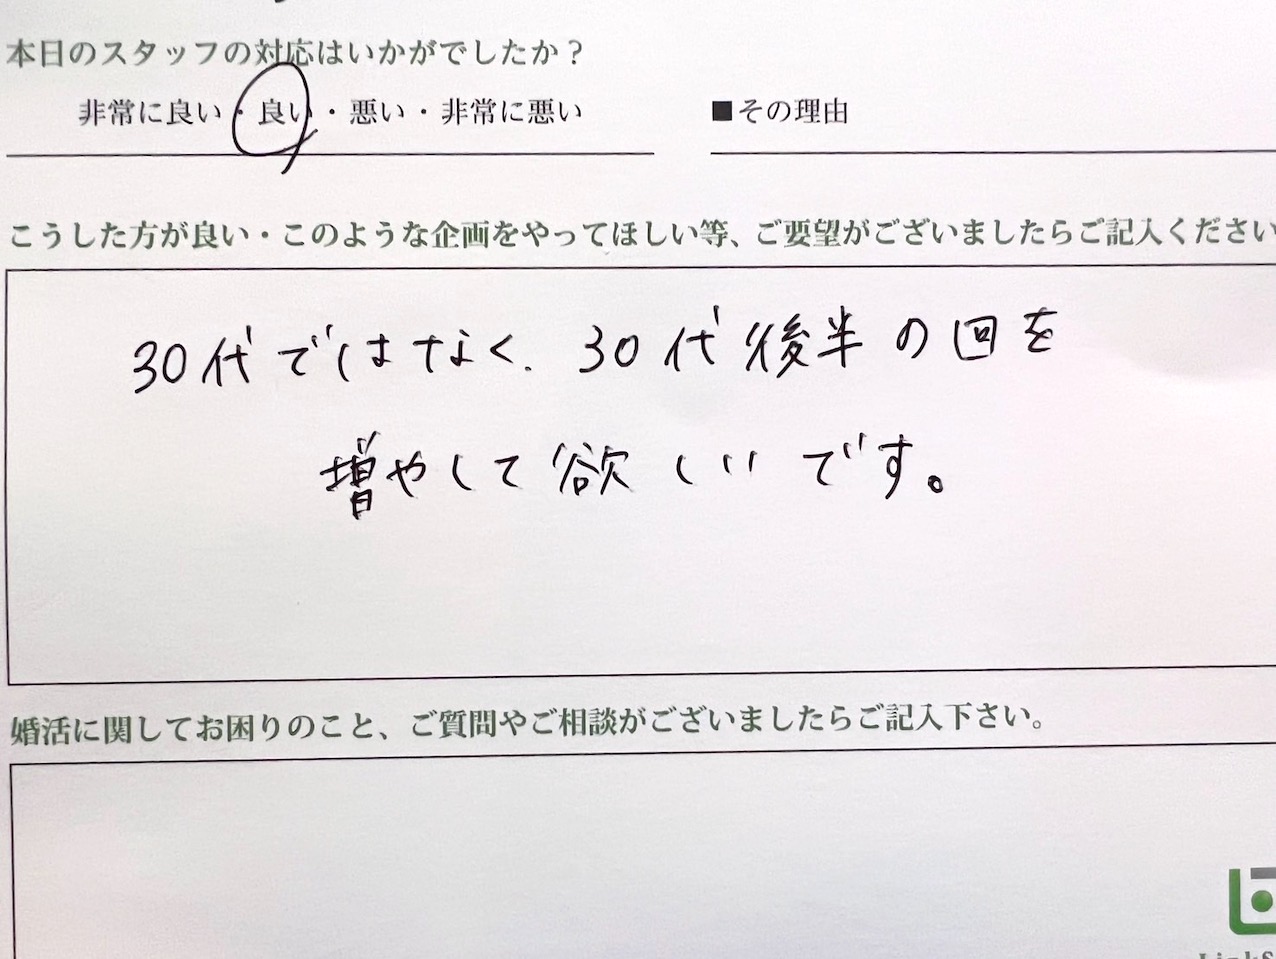 本日のスタッフの対応はいかがでしたか？
非常に良い・良い・悪い・非常に悪い ■その理由
こうした方が良い・このような企画をやってほしい等、ご要望がございましたらご記入ください
30代ではなく、30代後半の回を
増やして欲しいです。
婚活に関してお困りのこと、ご質問やご相談がございましたらご記入下さい。